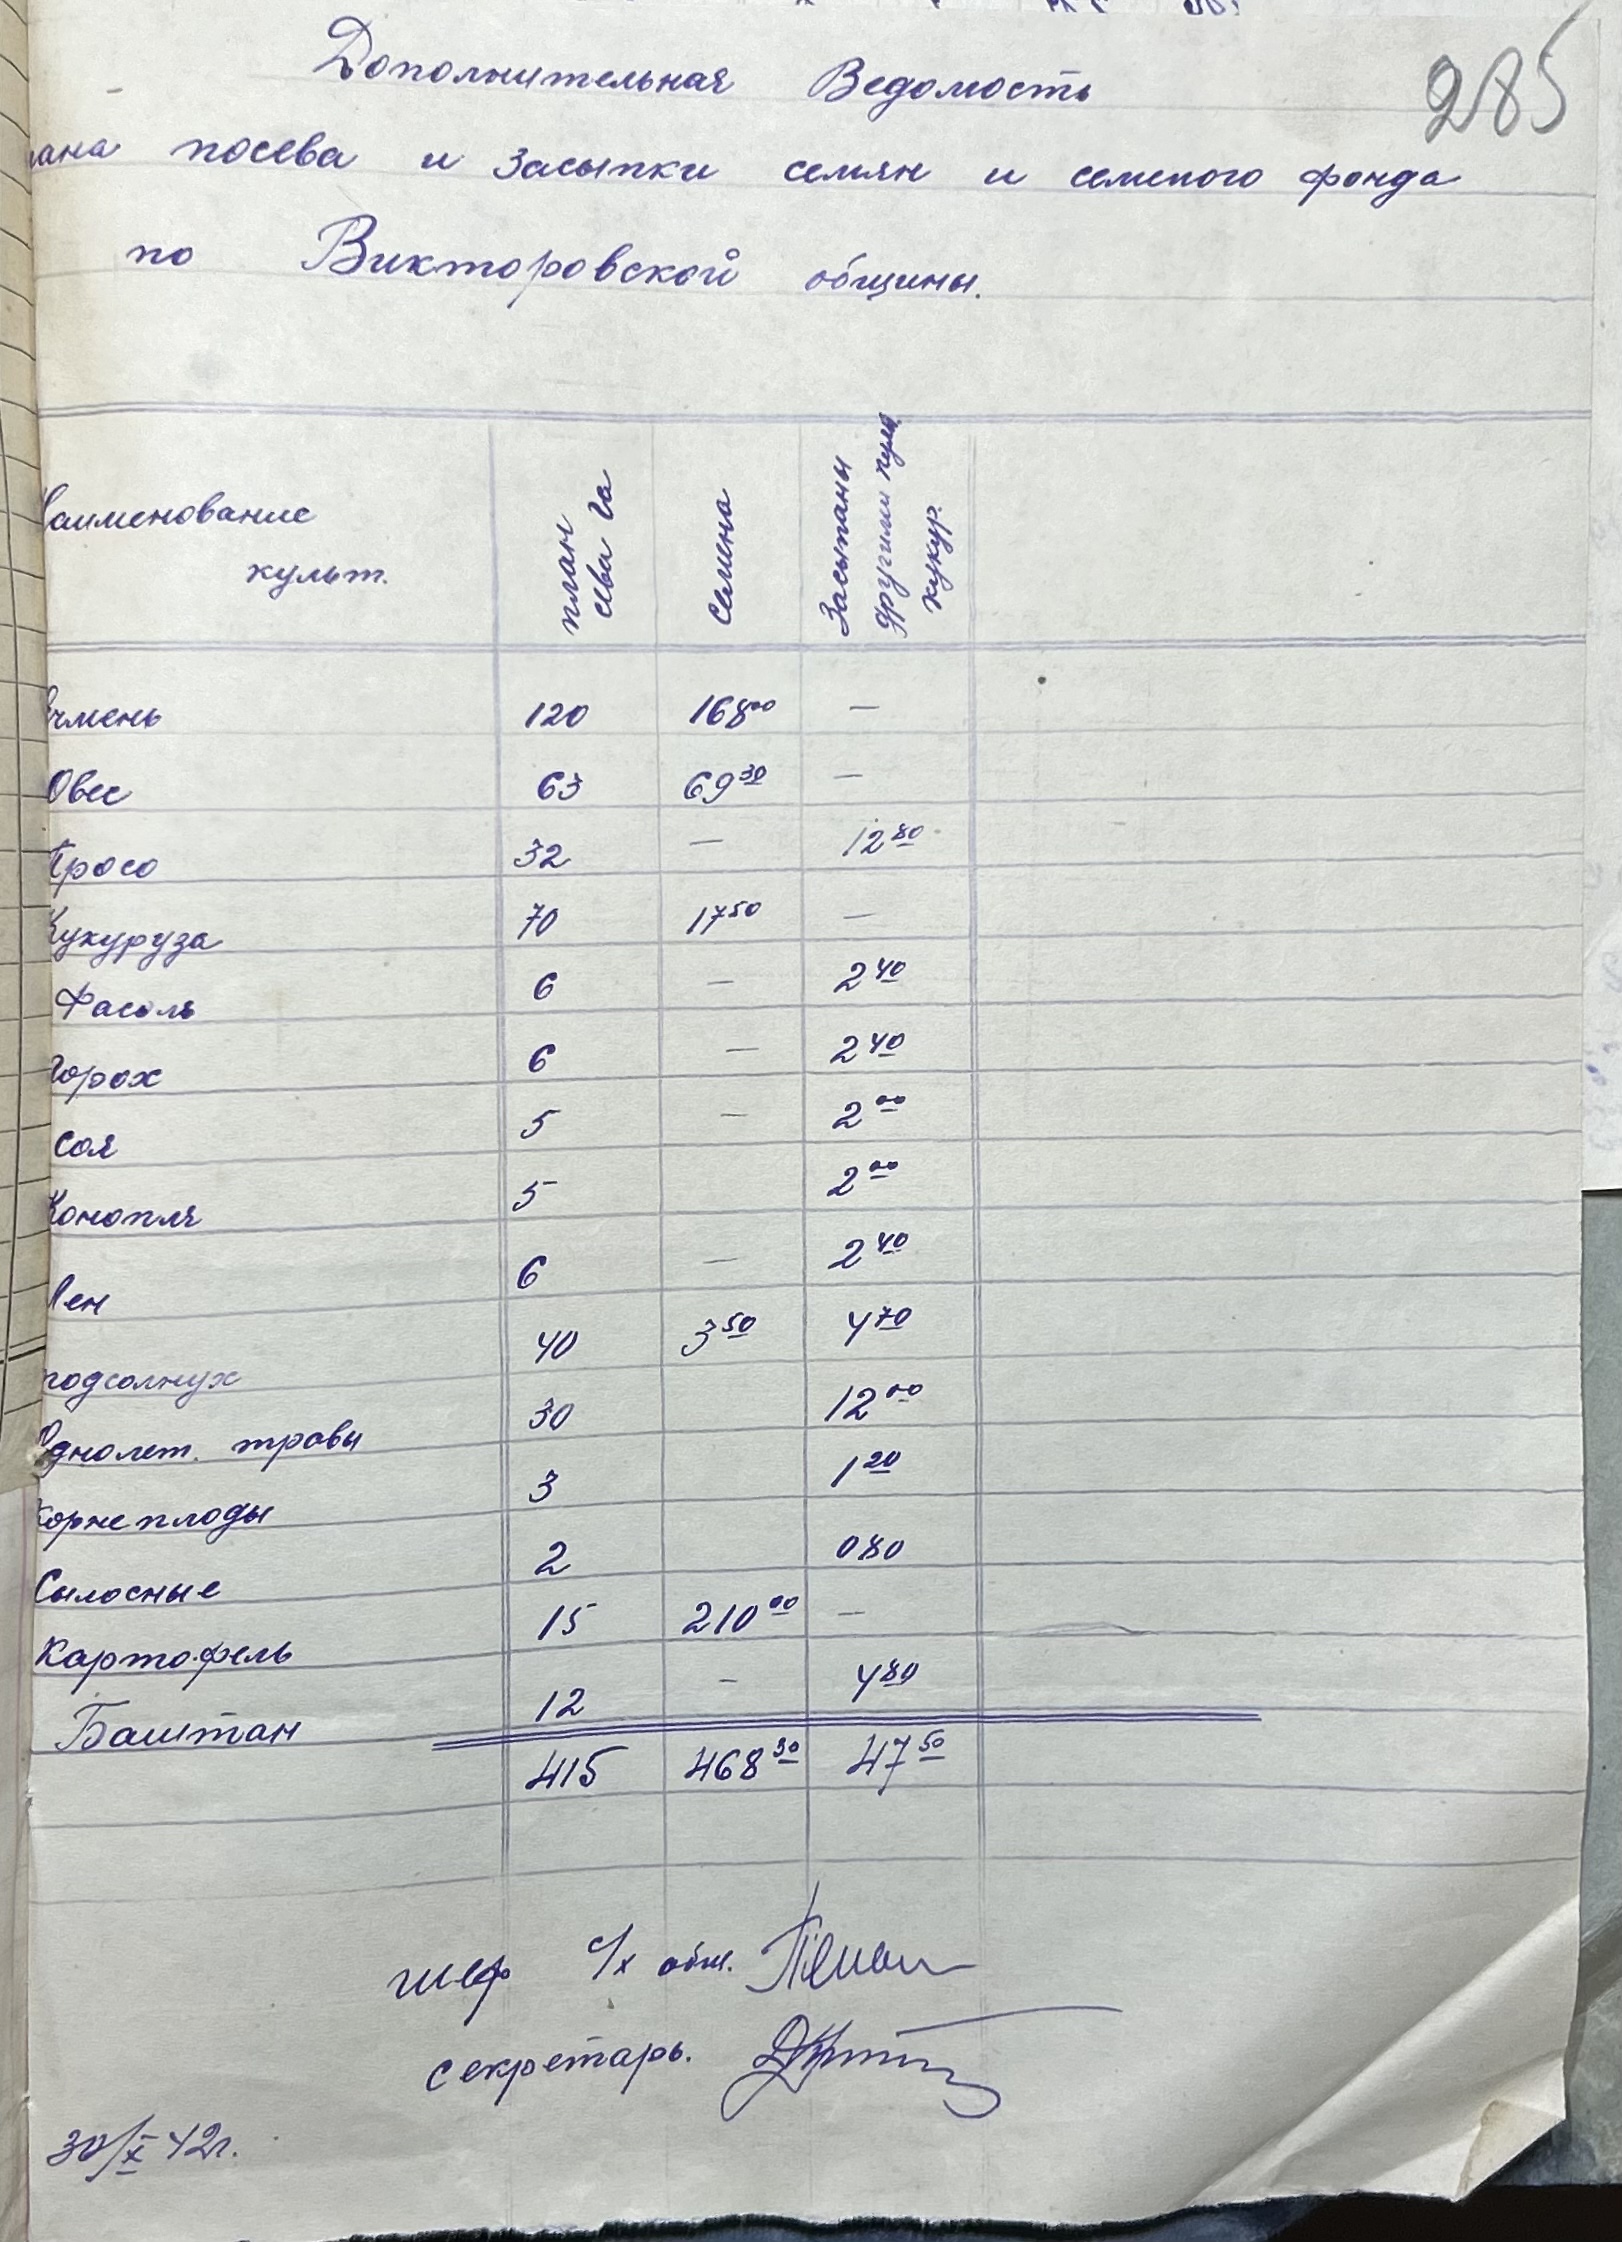 285
Дополнительная Ведомость
лана посева и засыпки семян и семеного фонда
по Викторовской общины.
Наименование культ. план сева га Семена Засыпаны другими культ. кукур.
Ячмень 120 168 00 —
Овес 63 69 30 —
Просо 32 — 12 80
Кукуруза 70 17 50 —
Фасоль 6 — 2 40
горох 6 — 2 40
соя 5 — 2 00
Конопля 5 2 00
Лен 6 — 2 40
подсолнух 40 3 50 4 70
Однолет. травы 30 12 00
корнеплоды 3 1 20
Сылосные 2 0 80
Картофель 15 210 00 —
Баштан 12 - 4 80
415 468 30 47 50
шеф с/х общ.
секретарь.
30/X 42г.